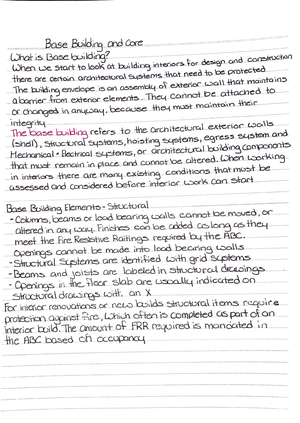 Base Building and Core
What is Base building?
When we start to look at building interiors for design and construction
there are certain architectural systems that need to be protected
The building envelope is an assembly of exterior wall that maintains
a barrier from exterior elements. They cannot be attached to
or changed in anyway, because they must maintain their
integrity
The base building refers to the architectural exterior walls
(shell), structural systems, hoisting systems, egress system and
Mechanical + Electrical systems, or architectural building components
that must remain in place and cannot be altered. When working
in interiors there are many existing conditions that must be
assessed and considered before interior work can start
Base Building Elements - Structural
- Columns, beams or load bearing walls cannot be moved, or
altered in any way. Finishes can be added as long as they
meet the Fire Resistive Raitings required by the ABC.
- Openings cannot be made into load bearing walls
- Structural Systems are identified with grid systems
- Beams and joists are labeled in structural drawings
- Openings in the floor slab are usually indicated on
structural drawings with an X
For interior renovations or new builds structural items require
protection against fire, which often is completed as part of an
interior build. The amount of FRR required is mandated in
the ABC based on occupancy